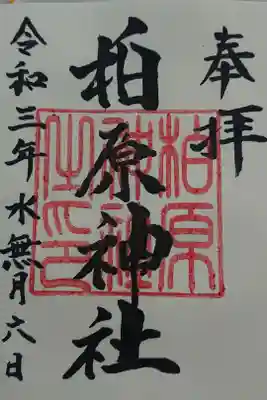 奉拝
柏原神社
柏原神社之印
令和三年水無月六日